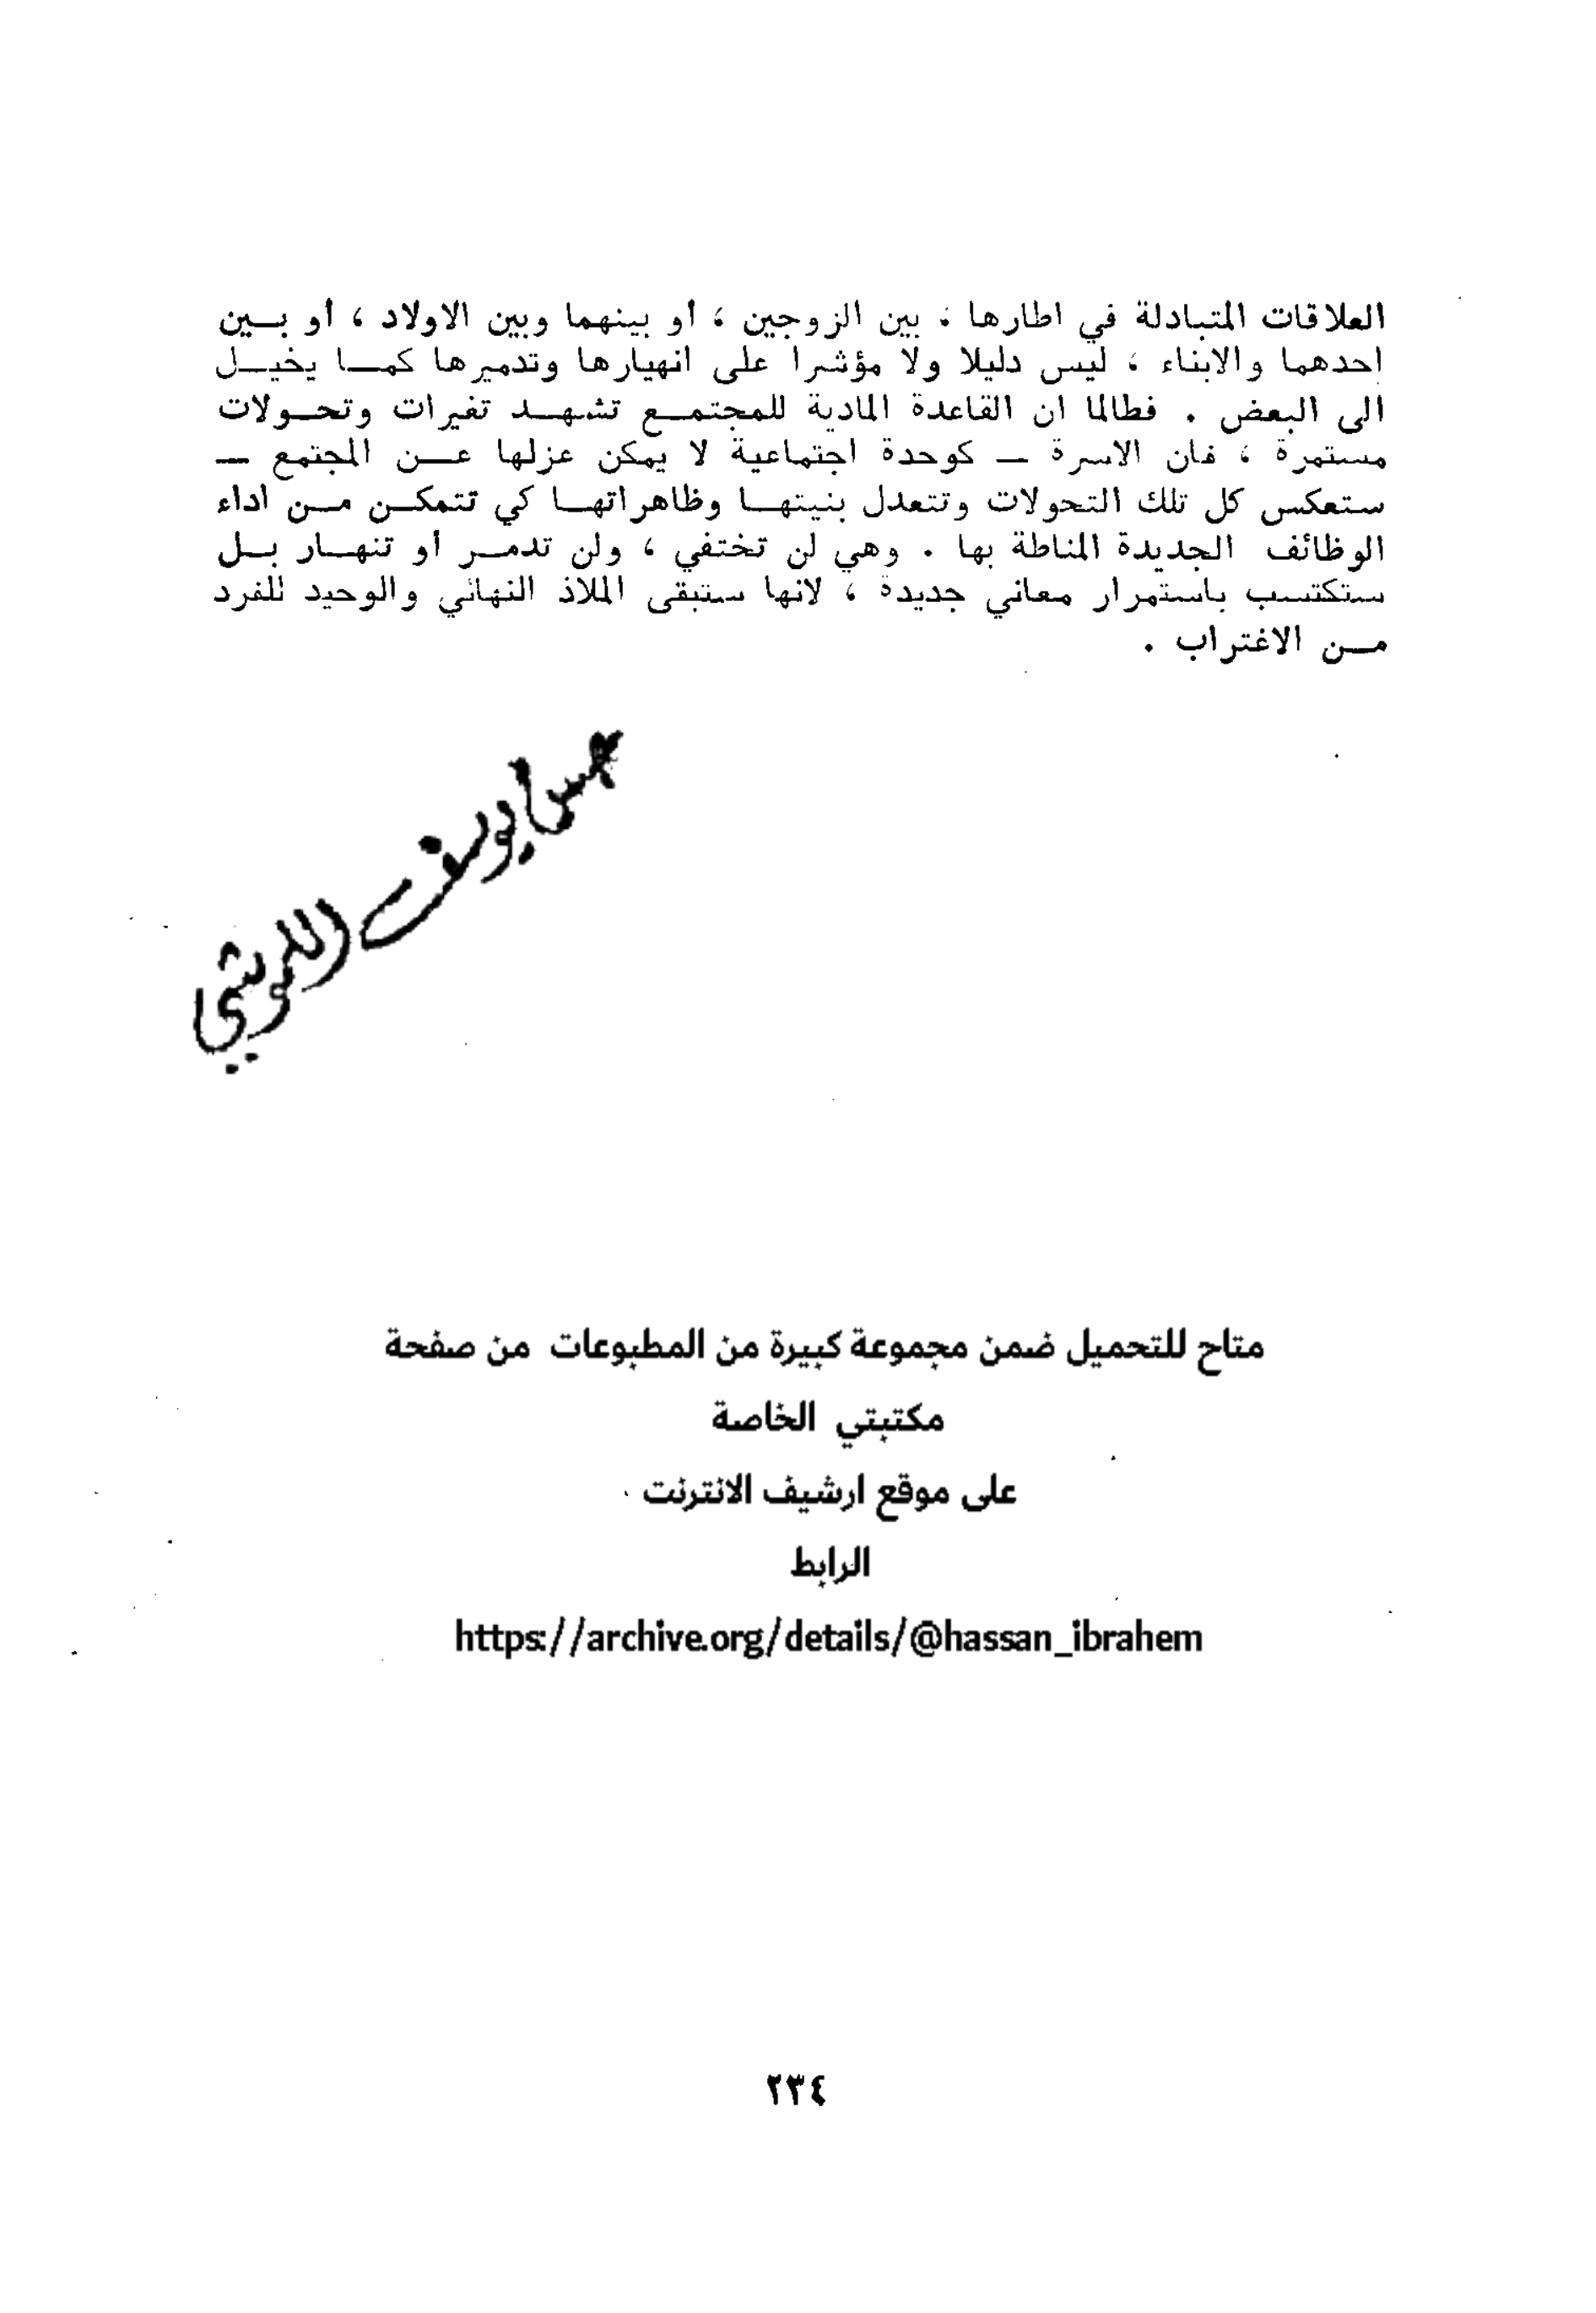 العلاقات المتبادلة في اطارها ، بين الزوجين ، أو بينهما وبين الاولاد ، أو بـين
احدهما والابناء ، ليس دليلا ولا مؤشرا على انهيارها وتدميرها كمـا يخيـل
الى البعض . فطالما ان القاعدة المادية للمجتمـع تشهـد تغيرات وتحـولات
مستمرة ، فان الاسرة — كوحدة اجتماعية لا يمكن عزلها عـن المجتمع —
ستعكس كل تلك التحولات وتتعدل بنيتهـا وظاهراتهـا كي تتمكـن مـن اداء
الوظائف الجديدة المناطة بها . وهي لن تختفي ، ولن تدمـر او تنهـار بـل
ستكتسب باستمرار معاني جديدة ، لانها ستبقى الملاذ النهائي والوحيد للفرد
مـن الاغتراب .
يوسف
متاح للتحميل ضمن مجموعة كبيرة من المطبوعات من صفحة
مكتبتي الخاصة
على موقع ارشيف الانترنت
الرابط
https://archive.org/details/@hassan_ibrahem
٢٣٤